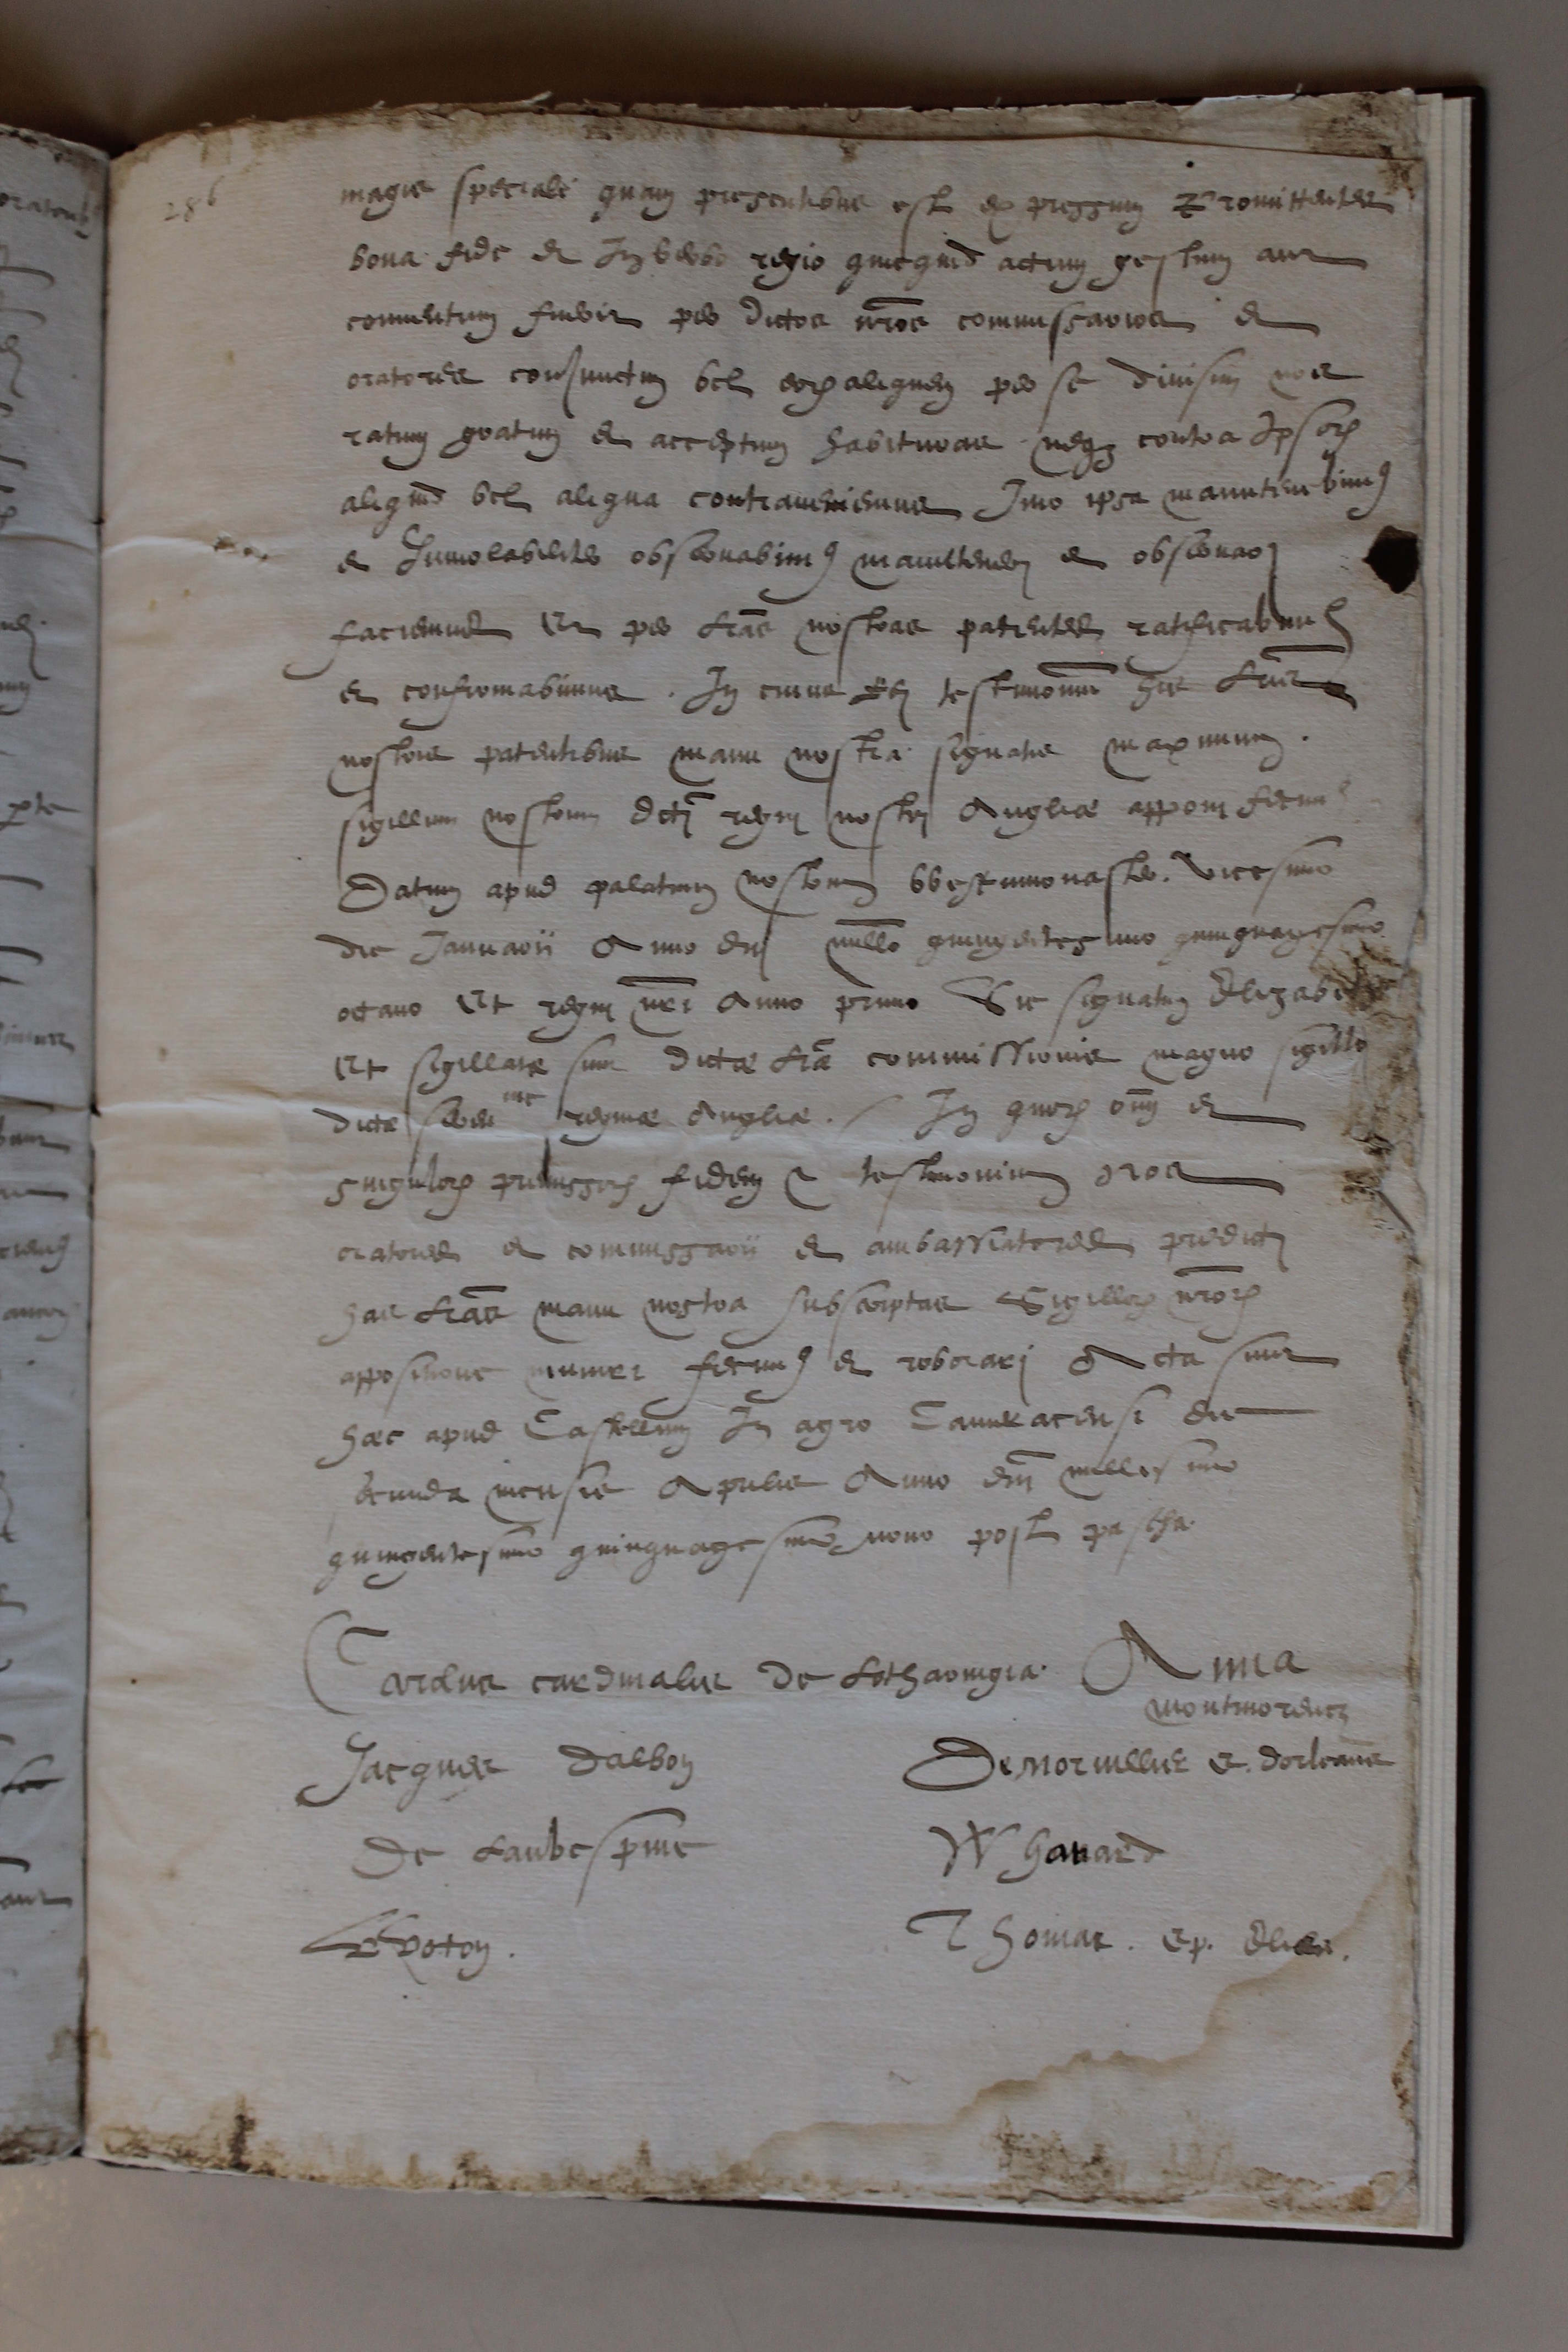 286
magis speciali quam presentibus est expressum Promittentes
bona fide et In verbo regio quicquid actum gestum aut
conventum fuerit per dictos nros commissarios et
oratores conjunctim vel eorum aliquem per se divisim nos
ratum gratum et acceptum habituras neque contra Ipsorum
aliquid vel aliqua contraveniemus Imo ipsa manutenebimus
et Inviolabiliter observabimus manuteneri et observari
faciemus Et per lras nostras patentes ratificabimus
et confirmabimus. In cuius rei testimonium his lris
nostris patentibus manu nostra signatis maximum
sigillum nostrum dcti regni nostri Angliæ apponi fecimus
Datum apud palatium nostrum Westmonaster. vicesimo
die Januarii Anno dni millo quingentesimo quinquagesimo
octavo Et regni nri Anno primo Sic signatum Elizabeth
Et sigillate sunt dictæ lræ commissionis magno sigillo
dictæ seren me reginæ Angliæ. In quorum omnium et
singulorum premissorum fidem et testimonium nos
oratores et commissarii et ambassiatores predicti
has lras manu nostra subscriptas Sigillorum nrorum
appositione muniri fecimus et roborari Acta sunt
hæc apud Castellum In agro Cameracensi die
secunda mensis Aprilis Anno dni millesimo
quingentesimo quinquagesimo nono post pascha
Carolus cardinalis de Lotharingia. Anna
Montmorency
Jacques Dalbon
De Morvillier E. dorleans
De Laubespine
W havard
N Wotton.
Thomas. Ep. Elien.